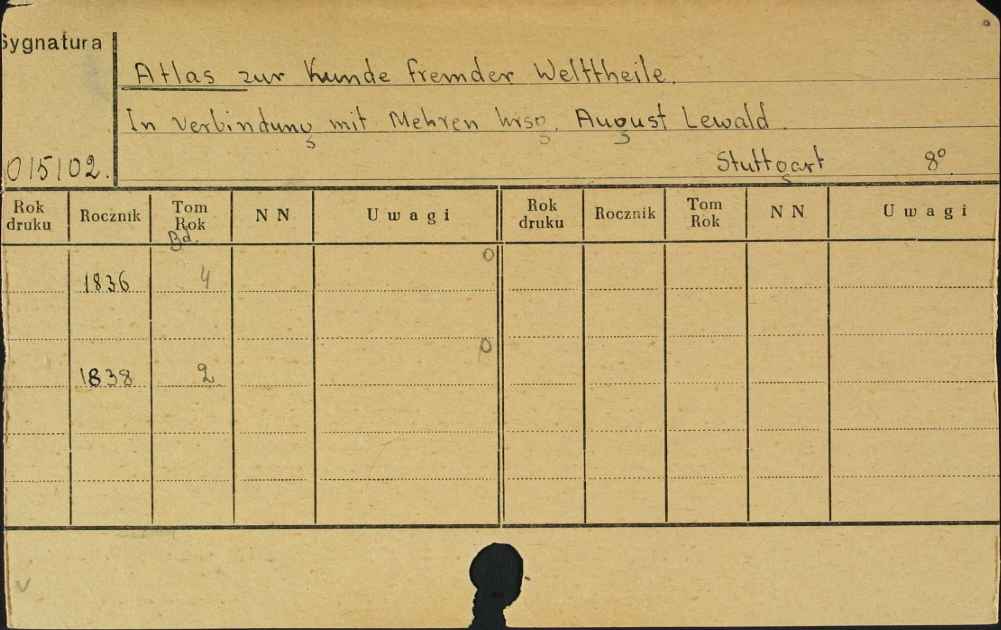 Sygnatura
Atlas zur Kunde fremder Welttheile.
In Verbindung mit Mehren hrsg. August Lewald.
015102.
Stuttgart 8°
Rok druku Rocznik Tom Rok Bd. N N Uwagi Rok druku Rocznik Tom Rok N N Uwagi
0
1836 4
0
1838 2
v